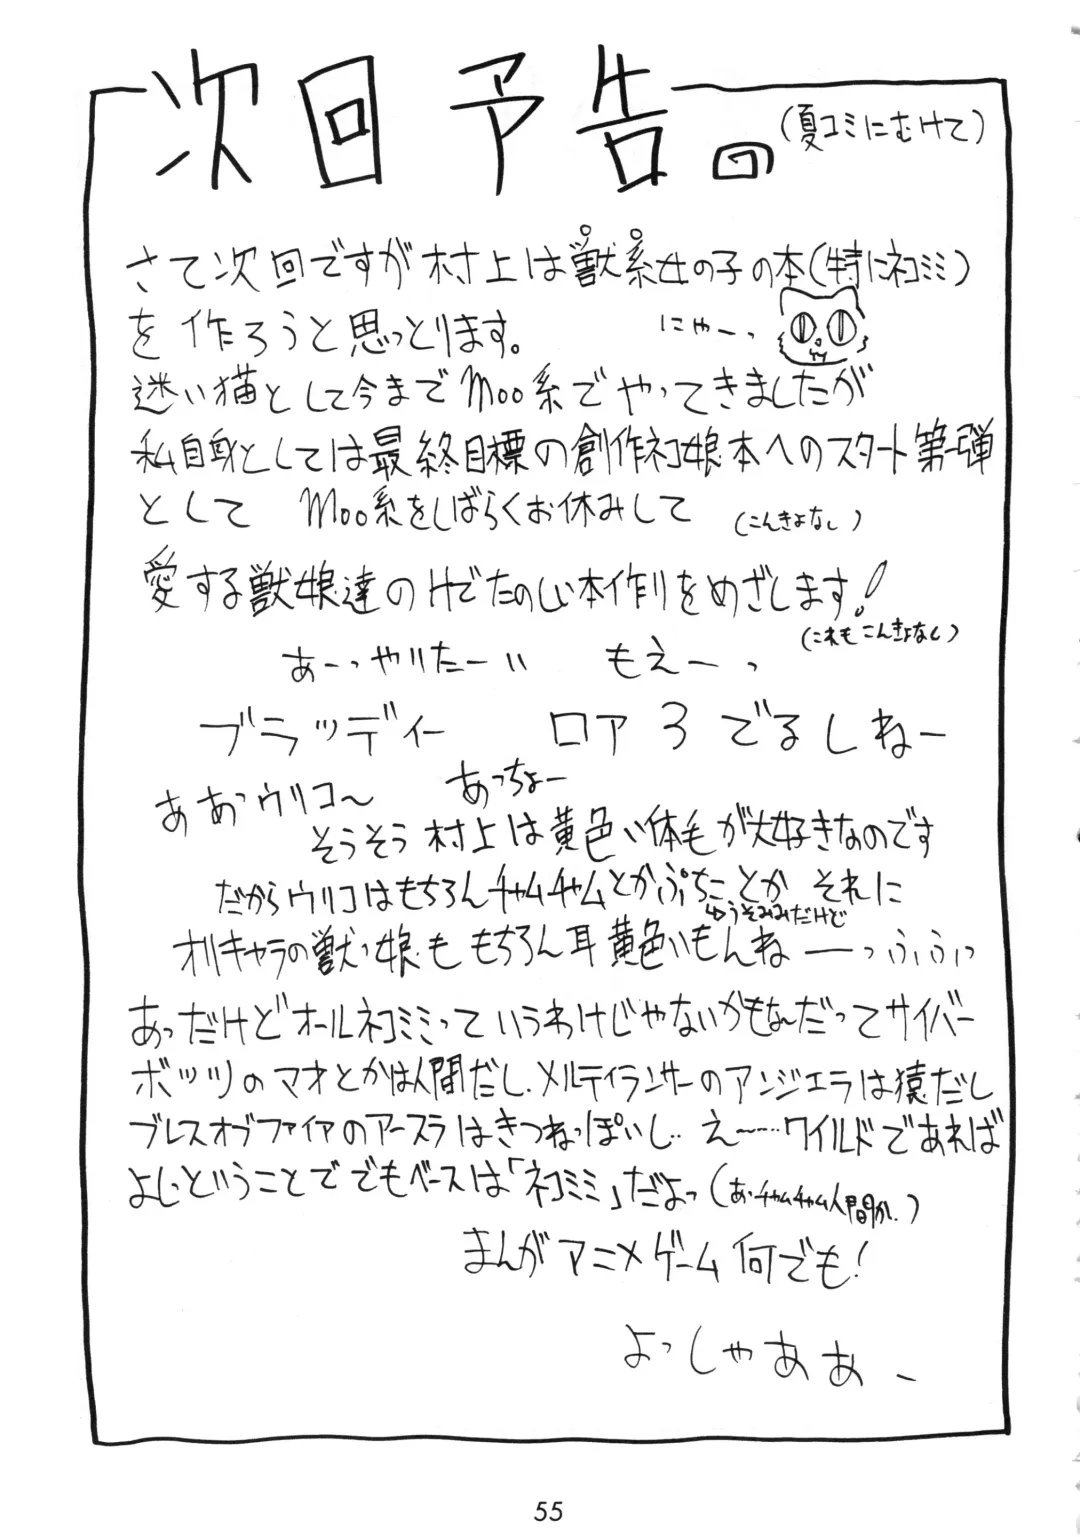 次回予告の
(夏コミにむけて)
さて次回ですが村上は獣系女の子の本(特にネコミミ)
を作ろうと思っとります。
にゃーっ
迷い猫として今までMoo系でやってきましたが
私自身としては最終目標の創作ネコ娘本へのスタート第一弾
として Moo系をしばらくお休みして
(こんきょなし)
愛する獣娘達のけでたのしい本作りをめざします!
(これもこんきょなし)
あーっやりたーい もえーっ
ブラッディー ロア3でるしねー
ああっウリコ〜 あっちょー
そうそう村上は黄色い体毛が大好きなのです
だからウリコはもちろんチャムチャムとかぷちことか それに
ゆうそみみだけど
オリキャラの獣っ娘ももちろん耳黄色いもんねーーっふふっ
あっだけどオールネコミミっていうわけじゃないかもな〜だってサイバー
ボッツのマオとかは人間だし、メルティランサーのアンジェラは猿だし
ブレスオブファイアのアースラはきつねっぽいし‥え〜……ワイルドであれば
よしということで でもベースは「ネコミミ」だよっ(あ・チャムチャム人間か.)
まんがアニメゲーム何でも!
よっしゃあぁー
55